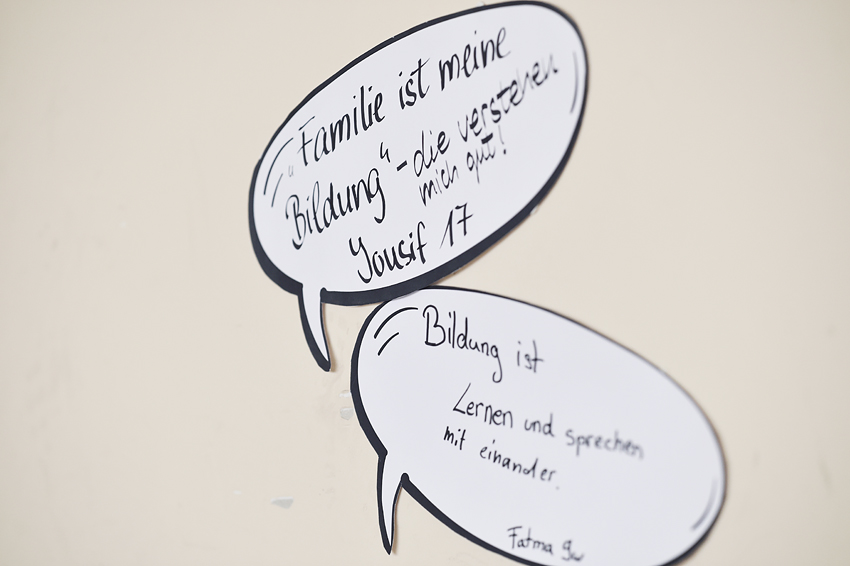 "Familie ist meine
Bildung" - die verstehen
mich gut!
Yousif 17
Bildung ist
Lernen und sprechen
mit einander.
Fatma